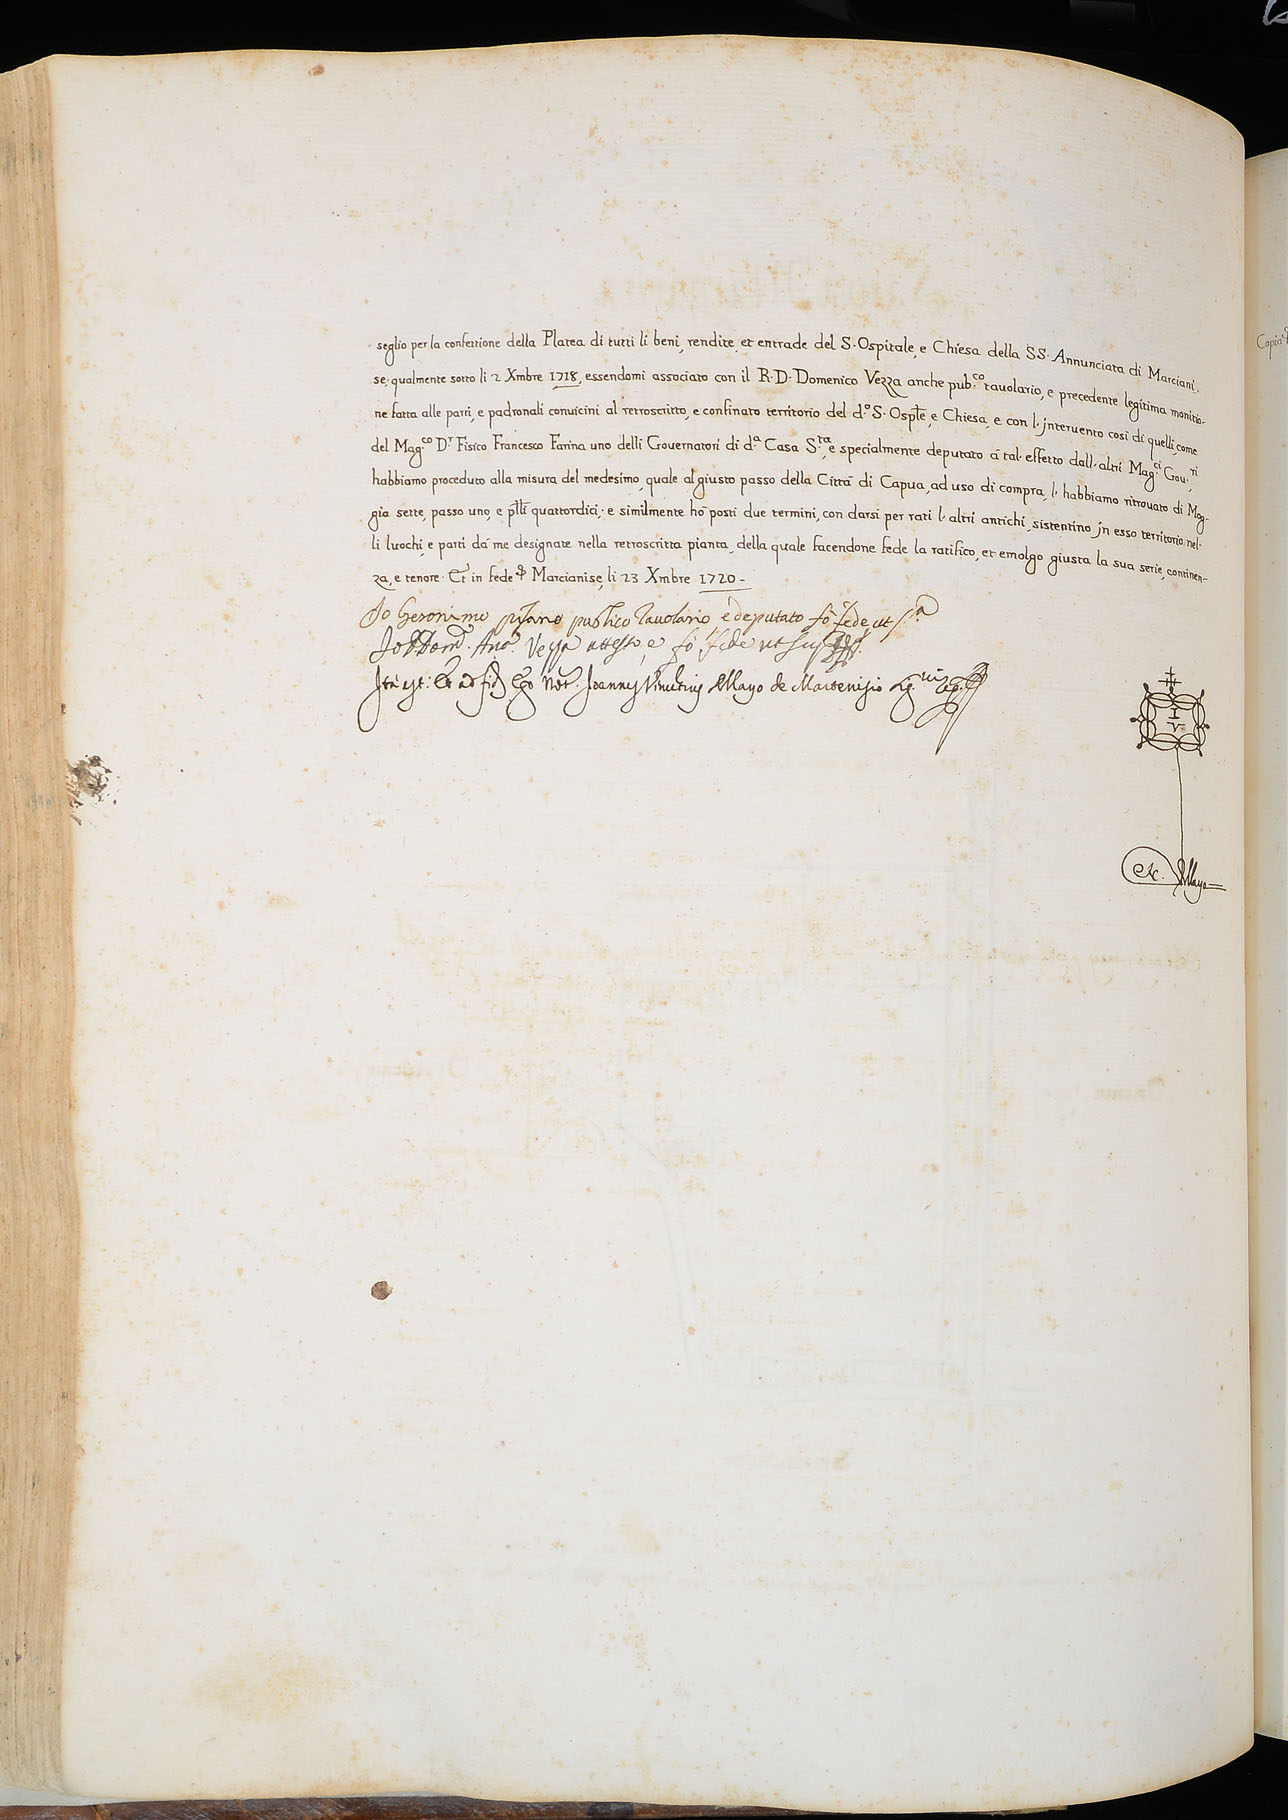 seglio per la confettione della Platea di tutti li beni, rendite, et entrade del S. Ospitale, e Chiesa della SS. Annunciata di Marciani-
se; qualmente sotto li 2 Xmbre 1718, essendomi associato con il R. D. Domenico Vezza anche pub.co tavolario, e precedente legitima monitio-
ne fatta alle parti, e padronali convicini al retroscritto, e confinato territorio del d.o S. Osple, e Chiesa, e con l'intervento così di quelli, come
del Mag.co D.r Fisico Francesco Farina uno delli Governatori di d.a Casa S.ta, e specialmente deputato à tal effetto dall'altri Mag.ci Gov.ri,
habbiamo proceduto alla misura del medesimo, quale al giusto passo della Città di Capua, ad uso di compra, l'habbiamo ritrovato di Mog-
gia sette, passo uno, e ptlli quattordici; e similmente hò posti due termini, con darsi per rati l'altri antichi, sistentino in esso territorio, nel-
li luochi, e parti dà me designate nella retroscritta pianta, della quale facendone fede la ratifico, et emolgo giusta la sua serie, continen-
za, e tenore. Et in fede &c Marcianise, li 23 Xmbre 1720 -
Io Geronimo pisano publico Tavolario e deputato fò fede ut s.a
Io D Dom.co Ant.o Vezza attesto, e fò fede ut sup
Ita est: Et ad fid. Ego Not. Joannes Vincentius Mayo de Marcenisio
I
V
&c. Mayo
Copia